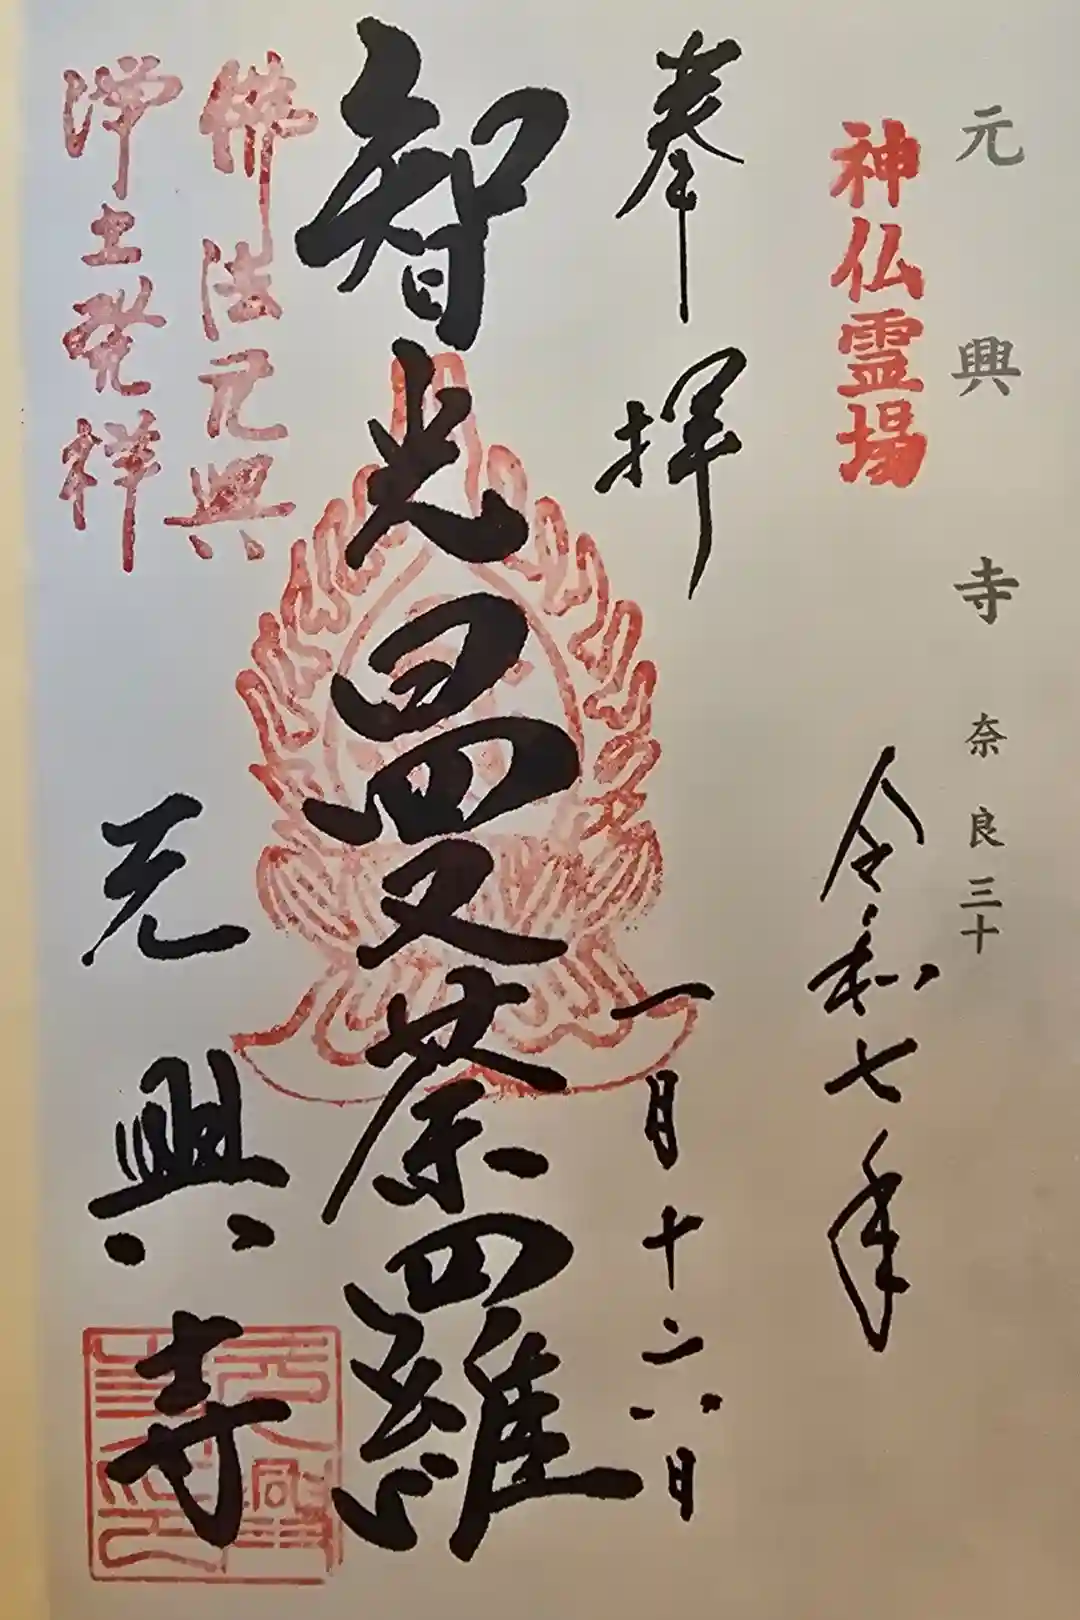 元興寺 奈良三十
神仏霊場
令和七年
奉拝
一月十六日
智光曼荼羅
佛法元興
浄土発祥
元興寺